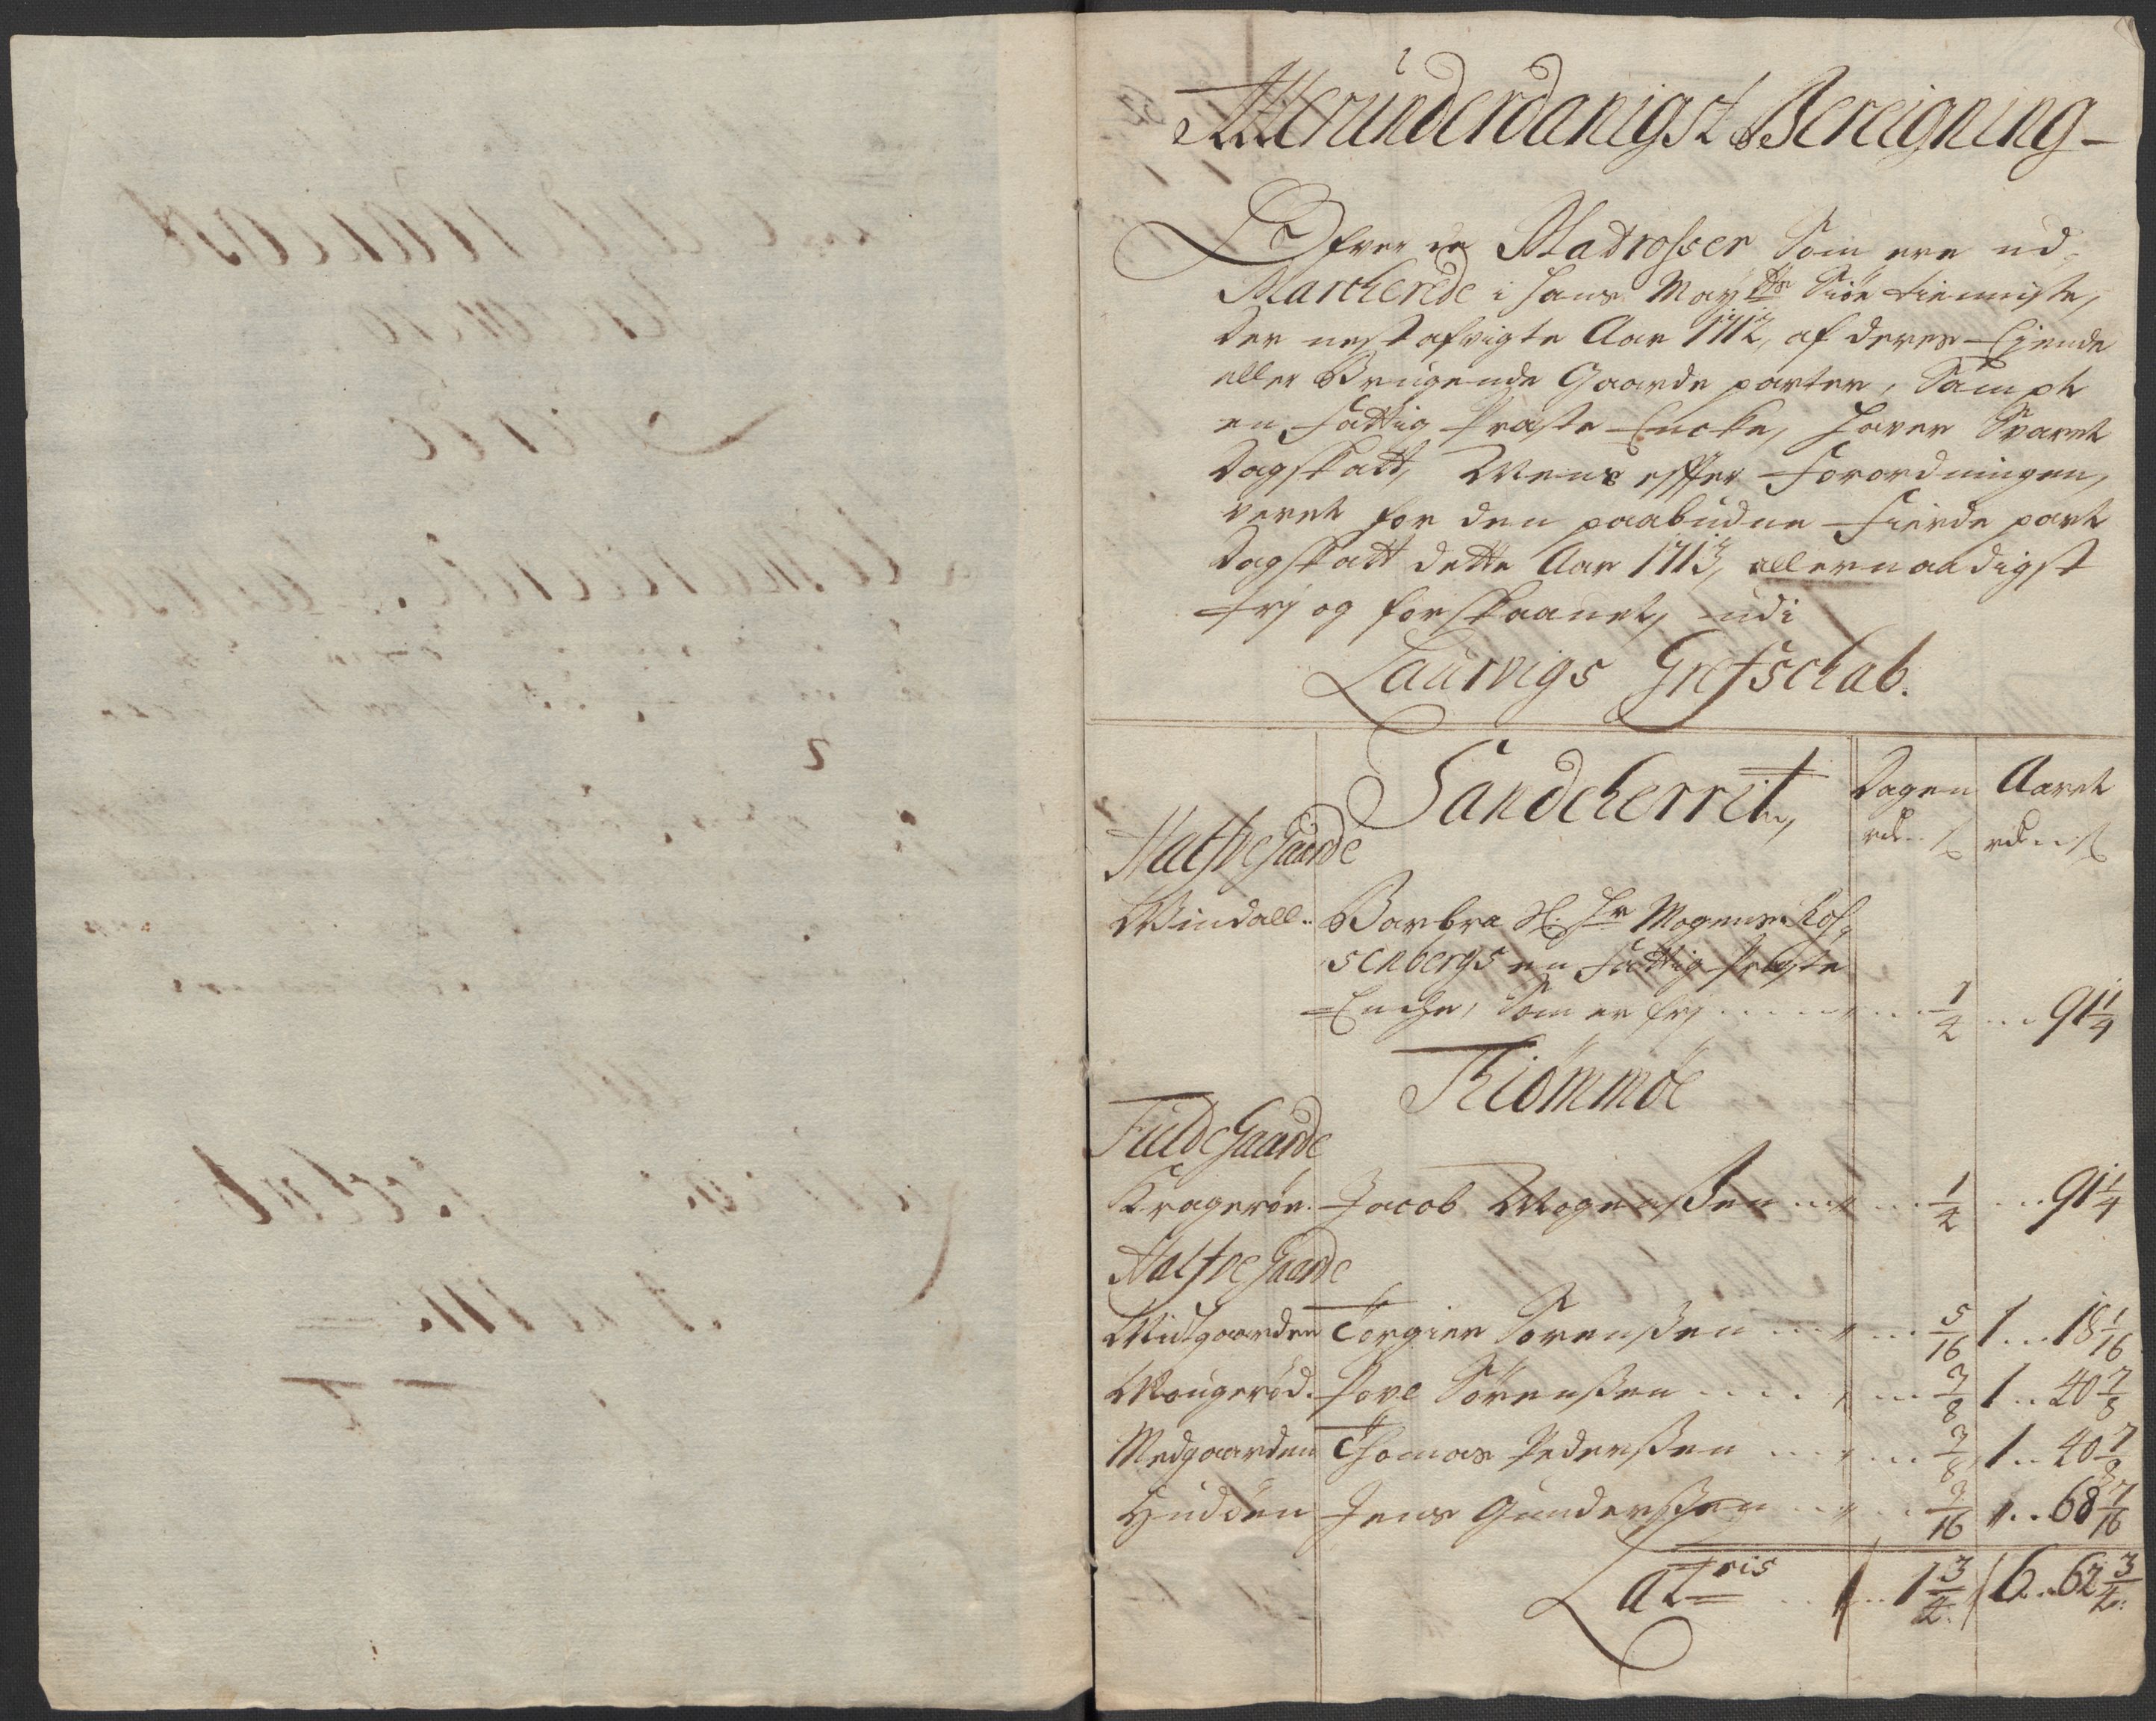 Allerunderdanigst Bereigning
Ofver de Matrosser Som ere ud
Marcherede i Hans Mayts Siøe tienniste,
der nest afvigte Aar 1712, af deres Ejende
eller Brugende Gaarde parter, Sampt
en fattig Præste Encke, haver Svaret
Dagskatt, Mens effter Forordningen,
veret for den paabudne Fierde part
Dagskatt dette Aar 1713, allernaadigst
frj og forskaanet, udi
Laurvigs Grefschab.
Sandeherret,
Dagen Aaret
rdr ß rdr ß
Halfve Gaarde
Windall Barbra Sl. Hr Mogens Ros
senbergs en fattig Præste
Encke, Som er frj 1/4 91 1/4
Thiømmøe
Fulde Gaarde
Kragerøe Jacob Mogenßen 1/4 91 1/4
Halfve Gaarde
Midgaarden Torgier Sørenßen 5/16 1 18 1/16
Mougerød Povel Sørenßen 3/8 1 40 7/8
Medgaarden Thomas Pederßen 3/8 1 40 7/8
Hudøen Jens Gunderßen 3/16 68 7/16
Latris 1 3/4 6 62 3/4